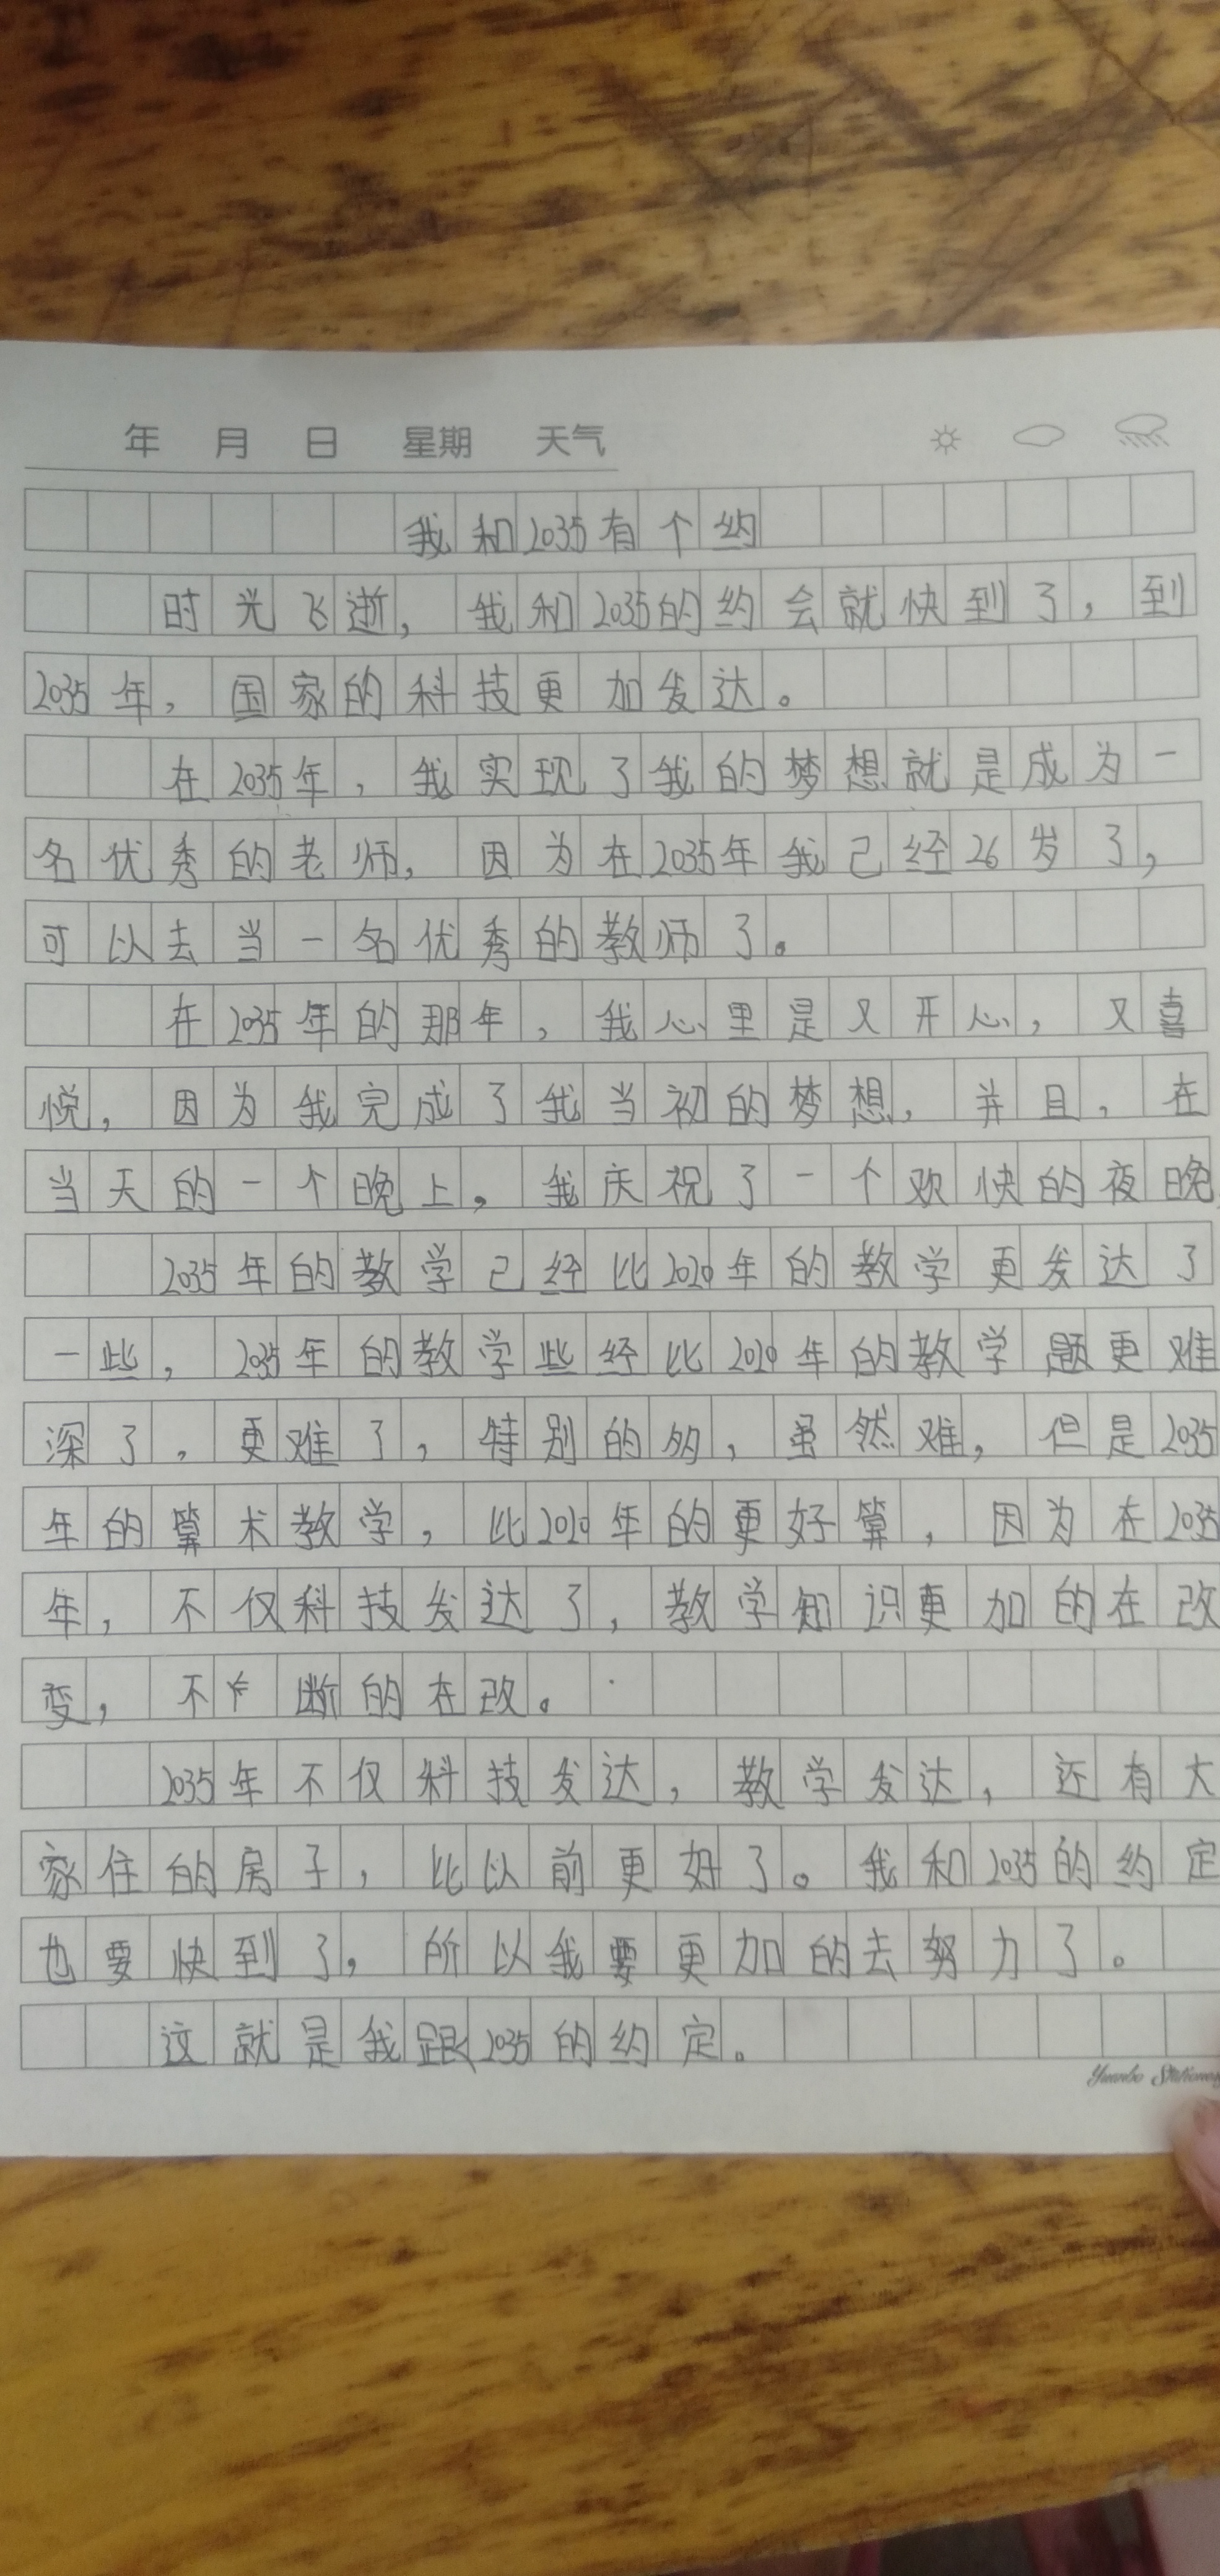 年 月 日 星期 天气
我和2035有个约
时光飞逝，我和2035的约会就快到了，到
2035年，国家的科技更加发达。
在2035年，我实现了我的梦想就是成为一
名优秀的老师，因为在2035年我已经26岁了，
可以去当一名优秀的教师了。
在2035年的那年，我心里是又开心，又喜
悦，因为我完成了我当初的梦想，并且，在
当天的一个晚上，我庆祝了一个欢快的夜晚
2035年的教学已经比2020年的教学更发达了
一些，2035年的教学些经比2020年的教学题更难
深了，更难了，特别的多，虽然难，但是2035
年的算术教学，比2020年的更好算，因为在2035
年，不仅科技发达了，教学知识更加的在改
变，不断的在改。
2035年不仅科技发达，教学发达，还有大
家住的房子，比以前更好了。我和2035的约定
也要快到了，所以我要更加的去努力了。
这就是我跟2035的约定。
Yuanbo Stationery